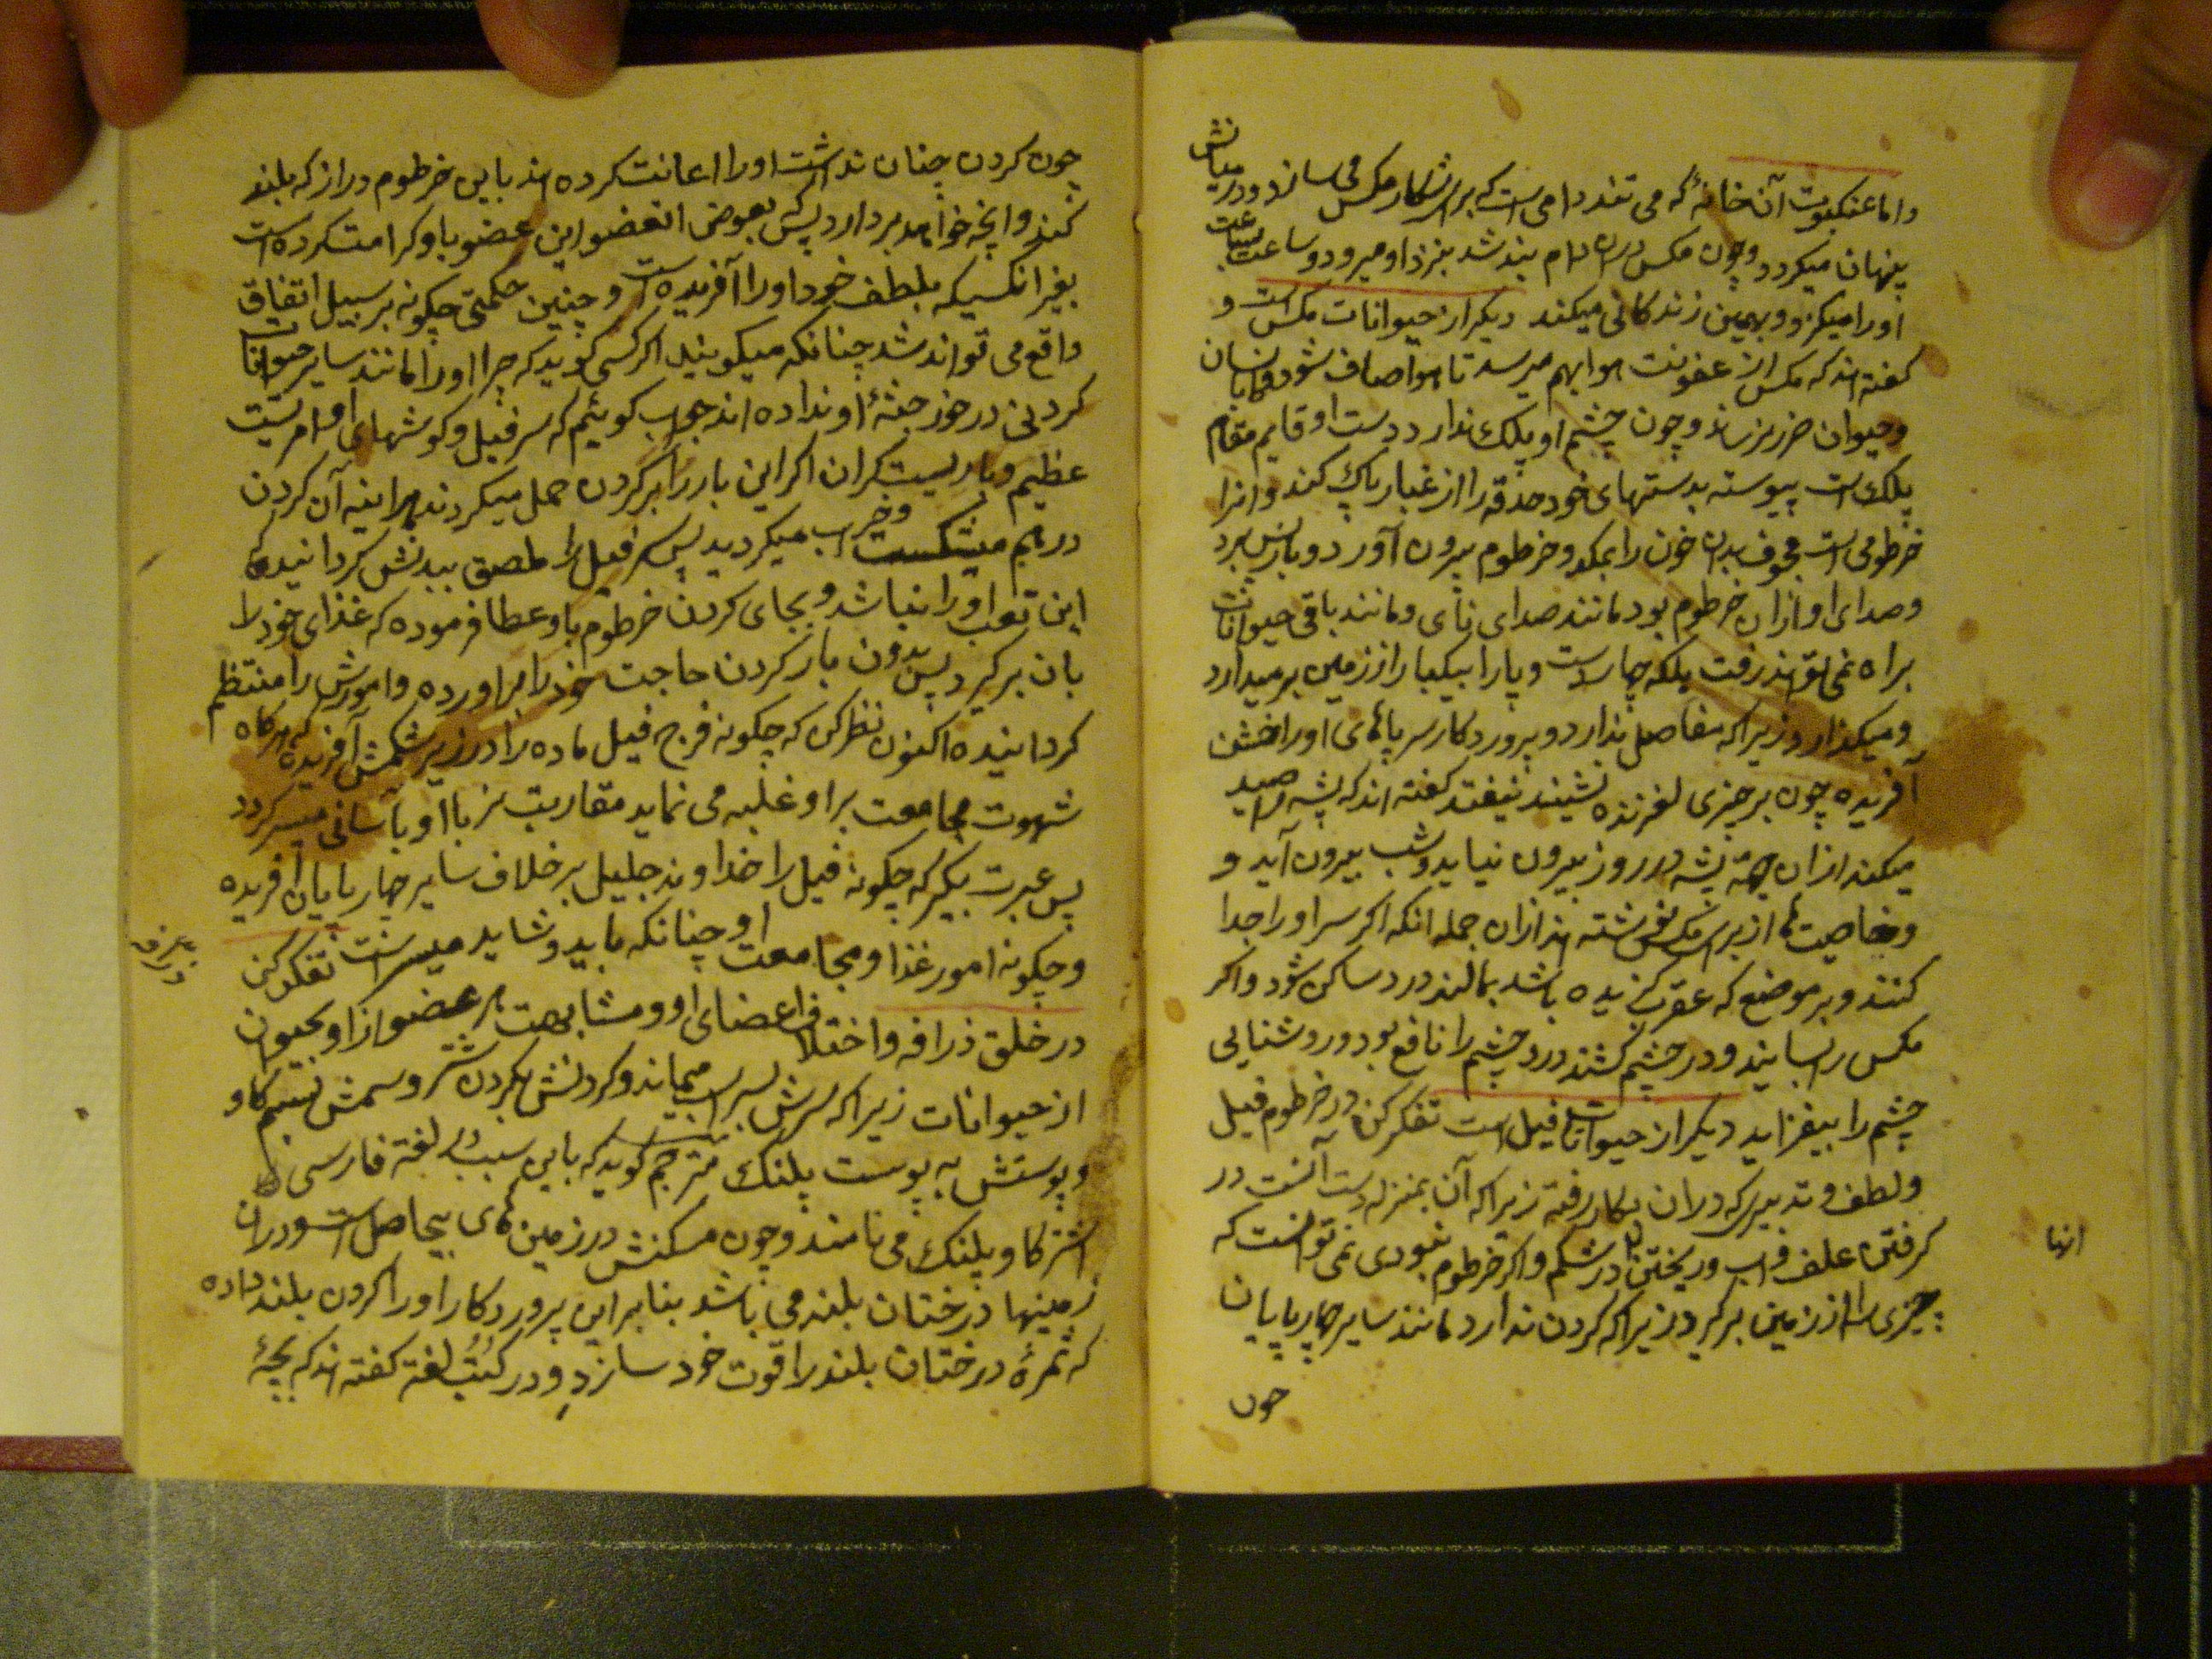 واما عنکبوت آن خانهٔ که می تند دامی است که برای شکار مکس می سازد و درمیانش
پنهان میکردد و چون مکس دران دام بند شد بنزد او میرود و ساعت بساعت
اورا میکزد و بهمین زندکانی میکند دیکر از حیوانات مکس است و
کفته اند که مکس از عفونت هوا بهم میرسد تا هوا صاف شود و بانسان
وحیوان ضرر نرساند و چون چشم او پلک ندارد دست او قایم مقام
پلک است پیوسته بدستهای خود حدقه را از غبار پاک کند و انرا
خرطومی است مجوف بدان خون را بمکد و خرطوم بیرون آورد و بازپس برد
وصدای او ازان خرطوم بود مانند صدای نای و مانند باقی حیوانات
براه نمی تواند رفت بلکه چهار دست و پا را بیکبار از زمین برمیدارد
ومیکذارد زیراکه مفاصل ندارد و پروردکار سر پاهای او را خشن
آفریده چون بر چیزی لغزنده نشیند نیفتد کفته اند که پشه را صید
میکند ازان جهة پشه در روز بیرون نیاید و شب بیرون آید و
وخاصیت ها از برای مکس نوشته اند ازان جمله انکه اکر سر اورا جدا
کنند و بر موضع که عقرب کزیده باشد بمالند درد ساکن شود واکر
مکس را بسایند و در چشم کشند درد چشم را نافع بود و روشنایی
چشم را بیفزاید دیکر از حیوانات فیل است تفکر کن در خرطوم فیل
ولطف و تدبیری که دران بکار رفته زیراکه آن بمنزله دست آنست در
کرفتن علف و اب و ریختن انها در شکم و اکر خرطوم نبودی نمی توانست که
چیزی را از زمین برکیرد زیراکه کردن ندارد مانند سایر چهارپایان
انها
چون
چون کردن چنان نداشت اورا اعانت کرده اند باین خرطوم دراز که بلند
کند و انچه خواهد بردارد پس که بعوض انعضو این عضو باو کرامت کرده است
بغیر انکسیکه بلطف خود اورا آفریده است و چنین حکمتی چکونه بر سبیل اتفاق
واقع می تواند شد چنانکه میکویند اکر کسی کوید که چرا اورا مانند سایر حیوانات
کردنی در خور جثهٔ او نداده اند جواب کوئیم که سر فیل و کوشهای او امریست
عظیم و باریست کران اکر این بار را بر کردن حمل میکردند هراینه آن کردن
درهم میشکست و خراب میکردید پس سر فیل را ملصق ببدنش کردانیده که
این تعب اورا نباشد و بجای کردن خرطوم باو عطا فرموده که غذای خود را
بان برکیرد پس بدون بار کردن حاجت خود را براورده و امورش را منتظم
کردانیده اکنون نظر کن که چکونه فرج فیل ماده را در زیر شکمش آفریده که هرکاه
شهوت مجامعت براو غلبه می نماید مقاربت نر با او باسانی میسر کردد
پس عبرت بکیر که چکونه فیل را خداوند جلیل بر خلاف سایر چهارپایان افریده
وچکونه امور غذا و مجامعت او چنانکه باید و شاید میسر است تفکر کن
در خلق ذرافه و اختلاف اعضای او و مشابهت هر عضو از او بحیوان
از حیوانات زیراکه سرش بسر اسب میماند و کردنش بکردن شتر و سمش بسم کاو
وپوستش به پوست پلنک مترجم کوید که باین سبب در لغة فارسی
اشتر کاو پلنک می نامند و چون مسکنش در زمین های بیحاصل است و دران
زمینها درختان بلند می باشد بنا بر این پروردکار اورا کردن بلند داده
که ثمرهٔ درختان بلند را قوت خود سازد و در کتب لغة کفته اند که بچهٔ